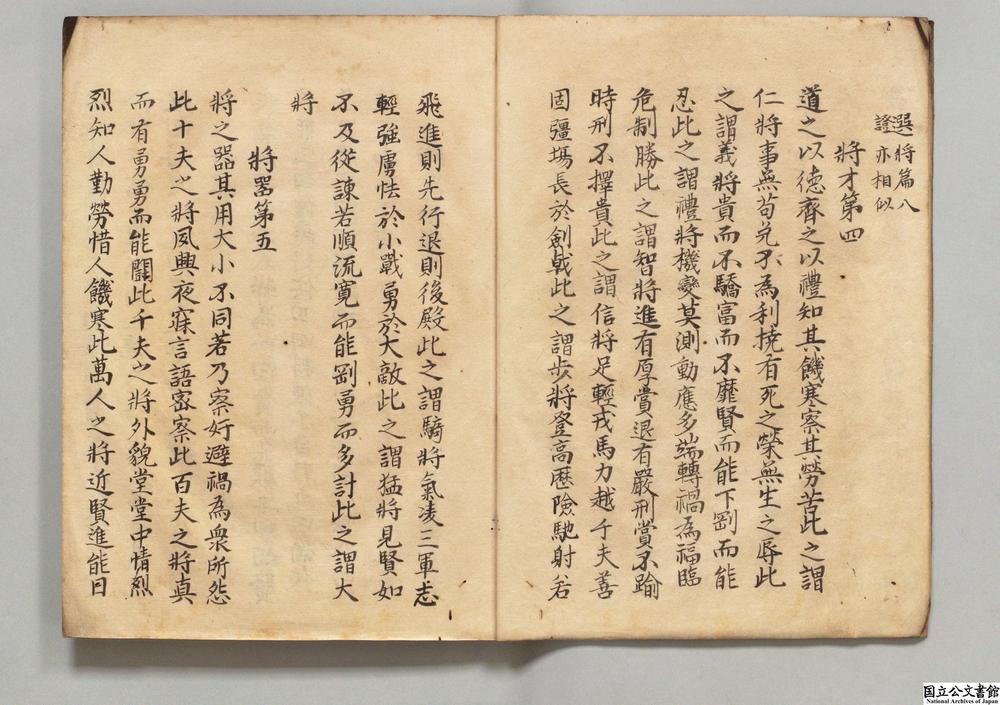 選將篇八
證亦相似
將才第四
道之以德齊之以禮知其饑寒察其勞苦此之謂
仁將事無苟免不為利撓有死之榮無生之辱此
之謂義將貴而不驕富而不靡賢而能下剛而能
忍此之謂禮將機變莫測動應多端轉禍為福臨
危制勝此之謂智將進有厚賞退有嚴刑賞不踰
時刑不擇貴此之謂信將足輕戎馬力越千夫善
固彊場長於劍戟此之謂步將登高歷險馳射若
飛進則先行退則後殿此之謂騎將氣凌三軍志
輕強虜怯於小戰勇於大敵此之謂猛將見賢如
不及從諫若順流寬而能剛勇而多討此之謂大
將
將器第五
將之器其用大小不同若乃察奸避禍為衆所怨
此十夫之將夙興夜寐言語密察此百夫之將真
而有勇勇而能鬭此千夫之將外貌堂堂中情烈
烈知人勤勞惜人饑寒此萬人之將近賢進能日
国立公文書館
National Archives of Japan